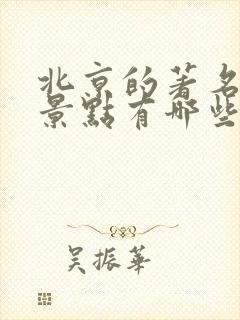 北京的著名
景點有哪些
吴振華